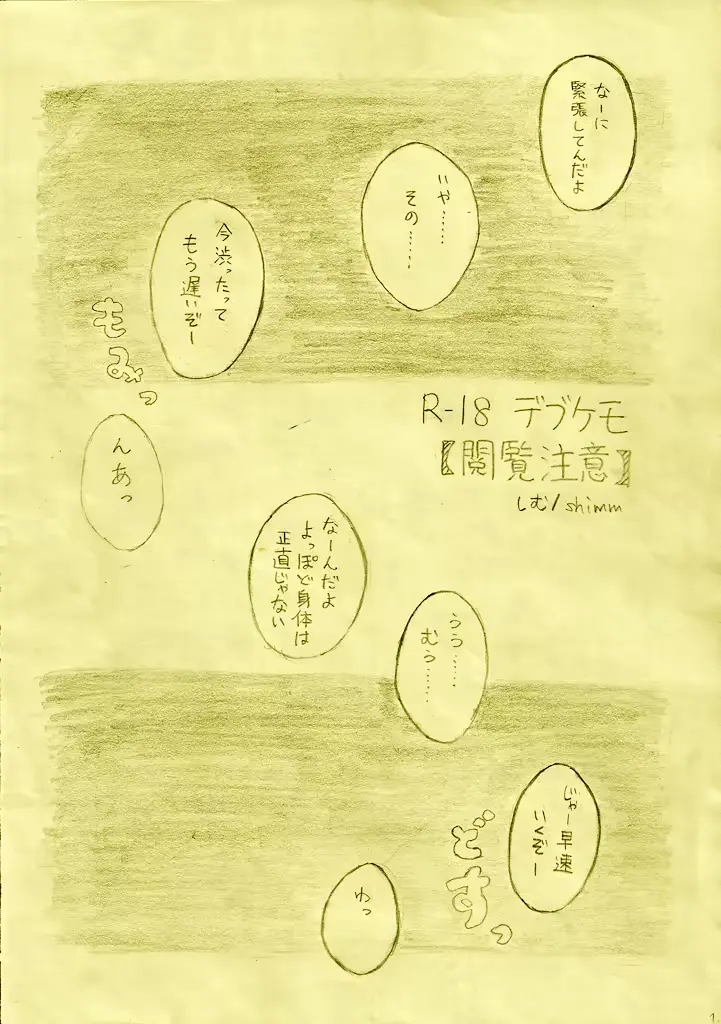 なーに
緊張してんだよ
いや……
その……
今渋ったって
もう遅いぞー
もみっ
R-18 デブケモ
【閲覧注意】
しむ/shimm
んあっ
なーんだよ
よっぽど身体は
正直じゃない
うう……
むう……
じゃー早速
いくぞー
どすっ
わっ
1